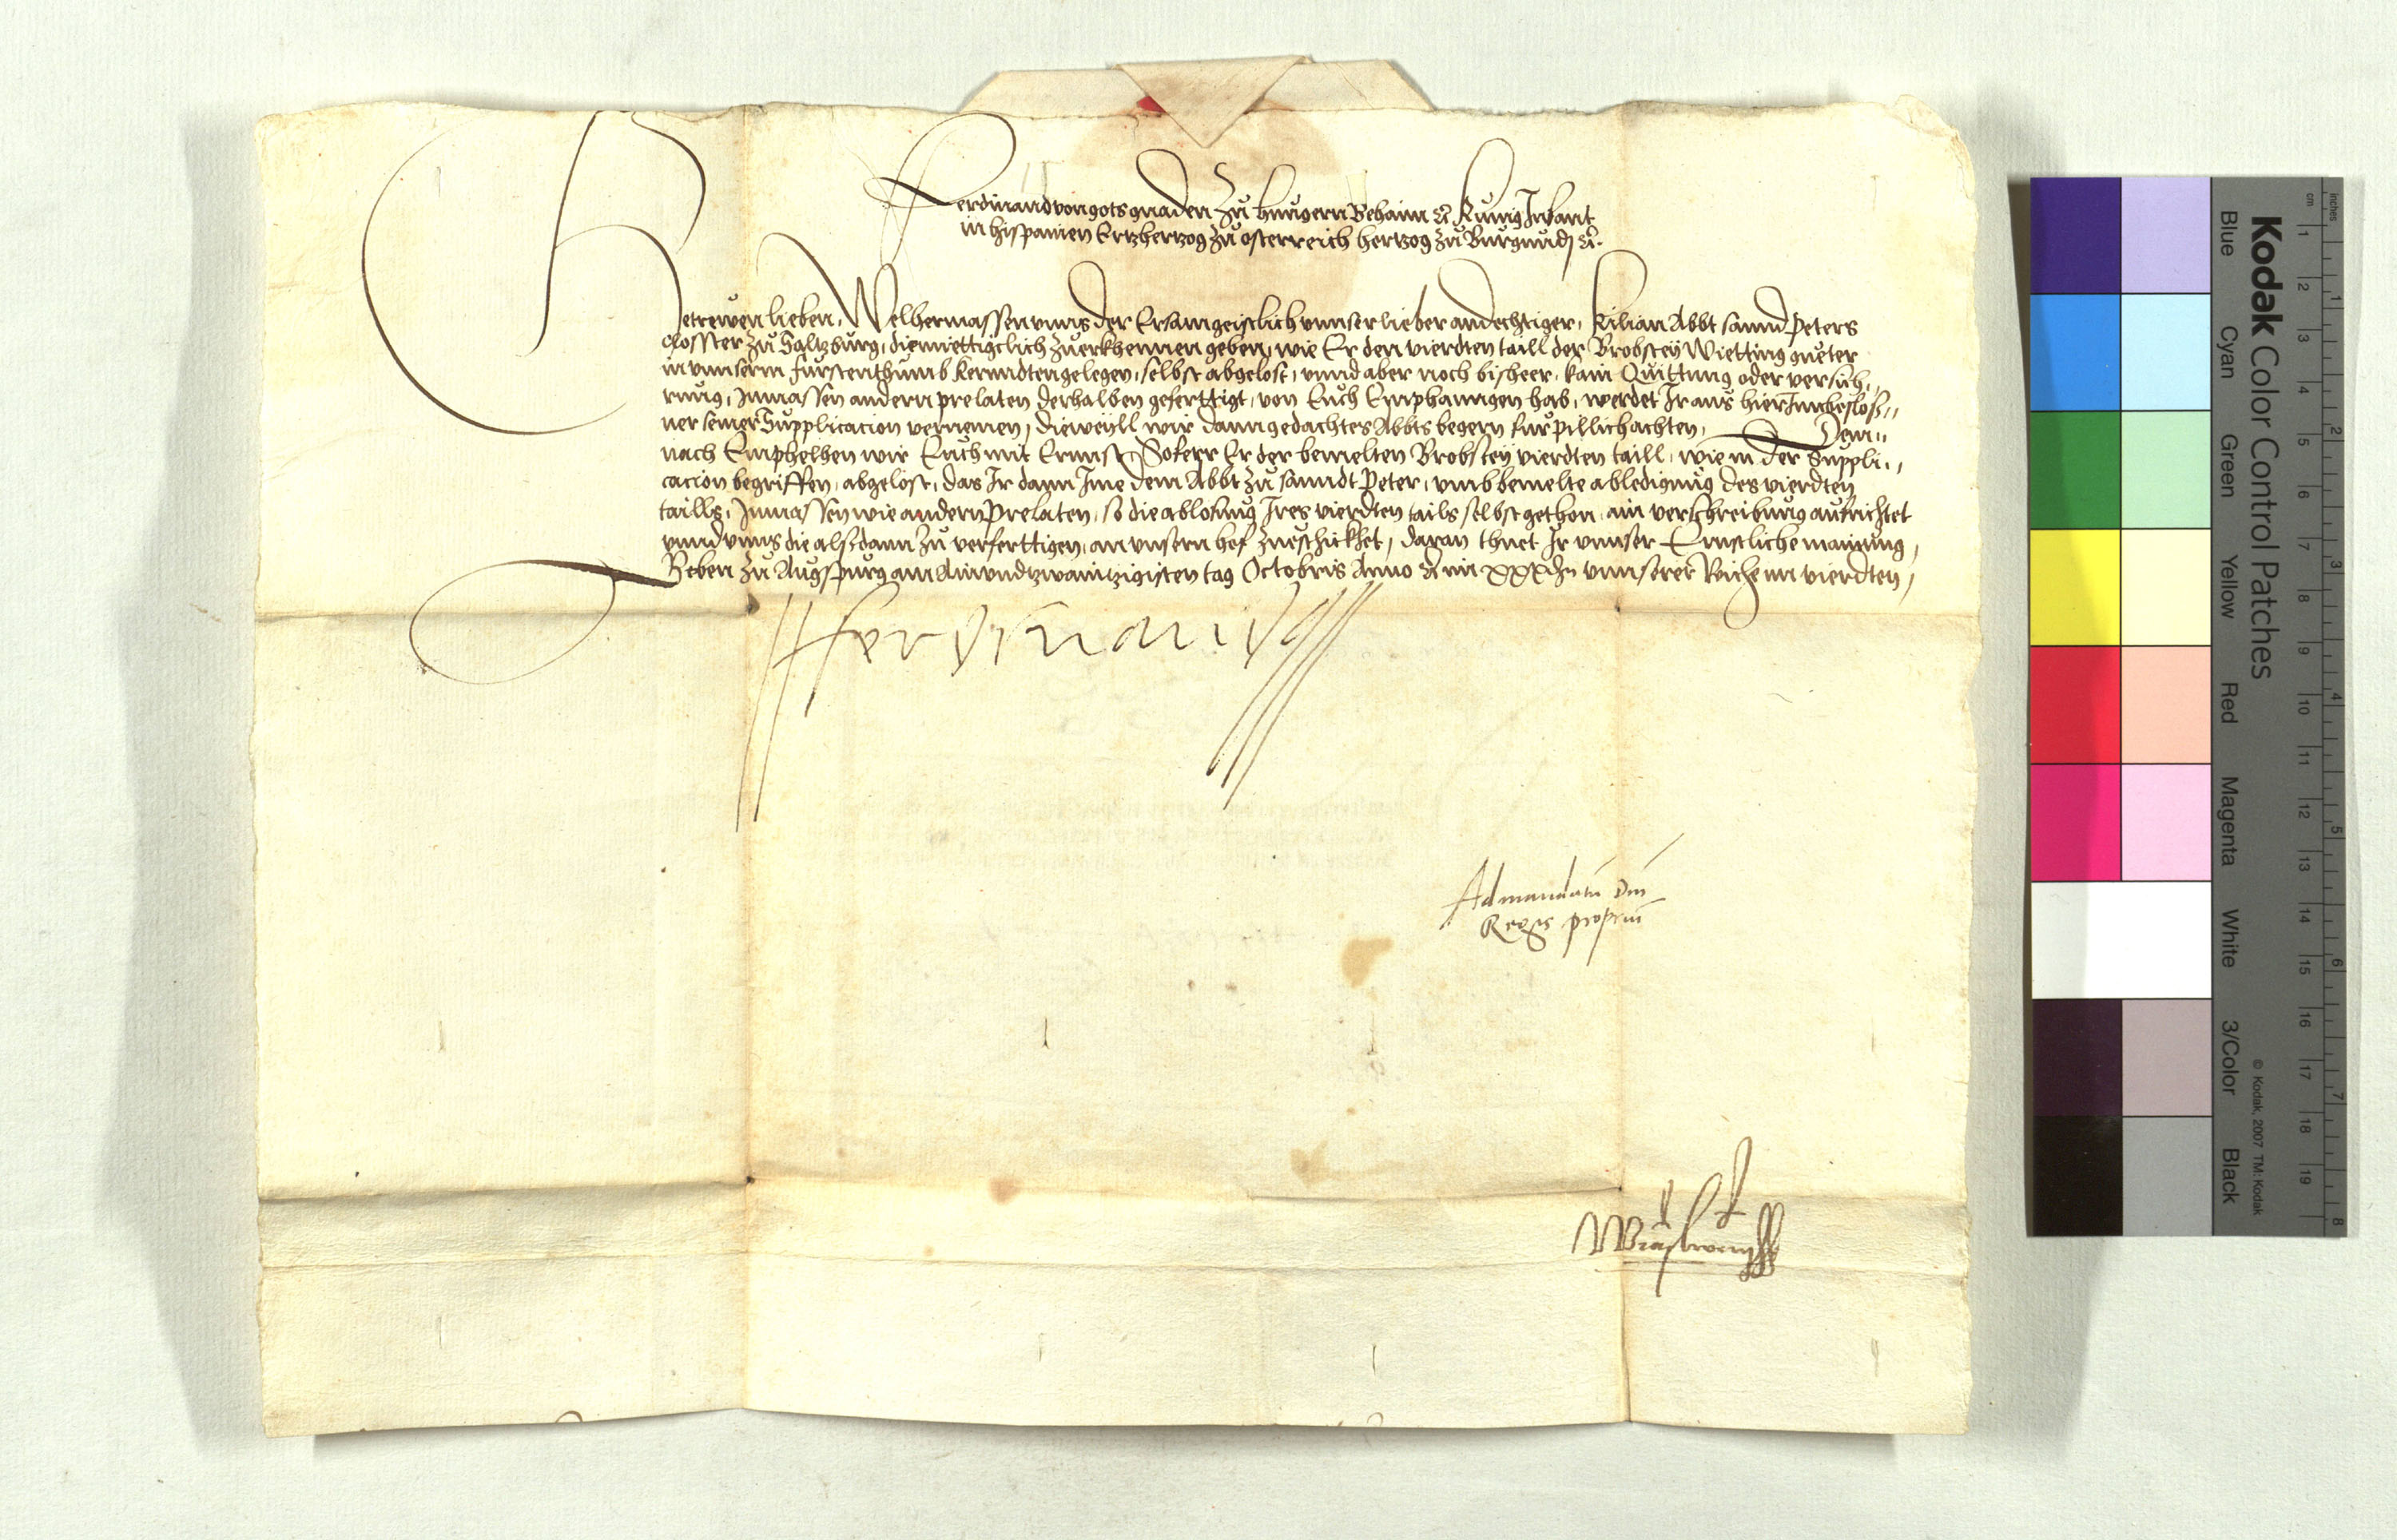 Ferdinand von gots gnaden zu Hungern Behaim etc Kunig Infant
in Hispanien Ertzhertzog zu Osterreich Hertzog zu Burgundj etc.
Getrewen lieben, Welhermassen unns der Ersam geistlich unnser lieber andechtiger, Kilian Abbt sannd Peters
closster zu Saltzburg, diemiettigclich zuerkhennen geben, wie Er den vierdten taill der Brobstey Wietting gueter
in unnserm furstenthumb Kernndten gelegen, selbst abgelost, unnd aber noch bisheer, kain Quittung oder versich„
rung, Inmassen andern prelaten derhalben geferttigt, von Euch Emphanngen hab, werdet Ir aus hierInnbesloß„
ner seiner Supplicacion vernemen, dieweyll wir dann gedachtes Abbts begern fur pillich achten, Dem„
nach Emphelhen wir Euch mit Ernnst, Soferr Er der bemelten Brobstey vierdten taill, wie in der Suppli„
cacion begriffen, abgelost, das Ir dann Ime dem Abbt zu sanndt Peter, umb bemelte abledigung des vierdten
taills, Inmassen wie andern Prelaten, so die ablosung Ires vierdten tails selbst gethon, ain verschreibung aufrichtet
unnd unns die alsdann zu verferttigen, an unsern hof zueschickhet, daran thuet Ir unnser Ernnstliche mainung,
Geben zu Augspurg am Ainundtzwaintzigisten tag Octobris Anno etc im xxxten unnserer Reiche im vierdten,
Ferdinand
Ad mandatu dni
Regis propriu
Kodak Color Control Patches
Blue Cyan Green Yellow Red Magenta White 3/Color Black
© Kodak, 2007 TM: Kodak
inches 1 2 3 4 5 6 7 8
cm 1 2 3 4 5 6 7 8 9 10 11 12 13 14 15 16 17 18 19